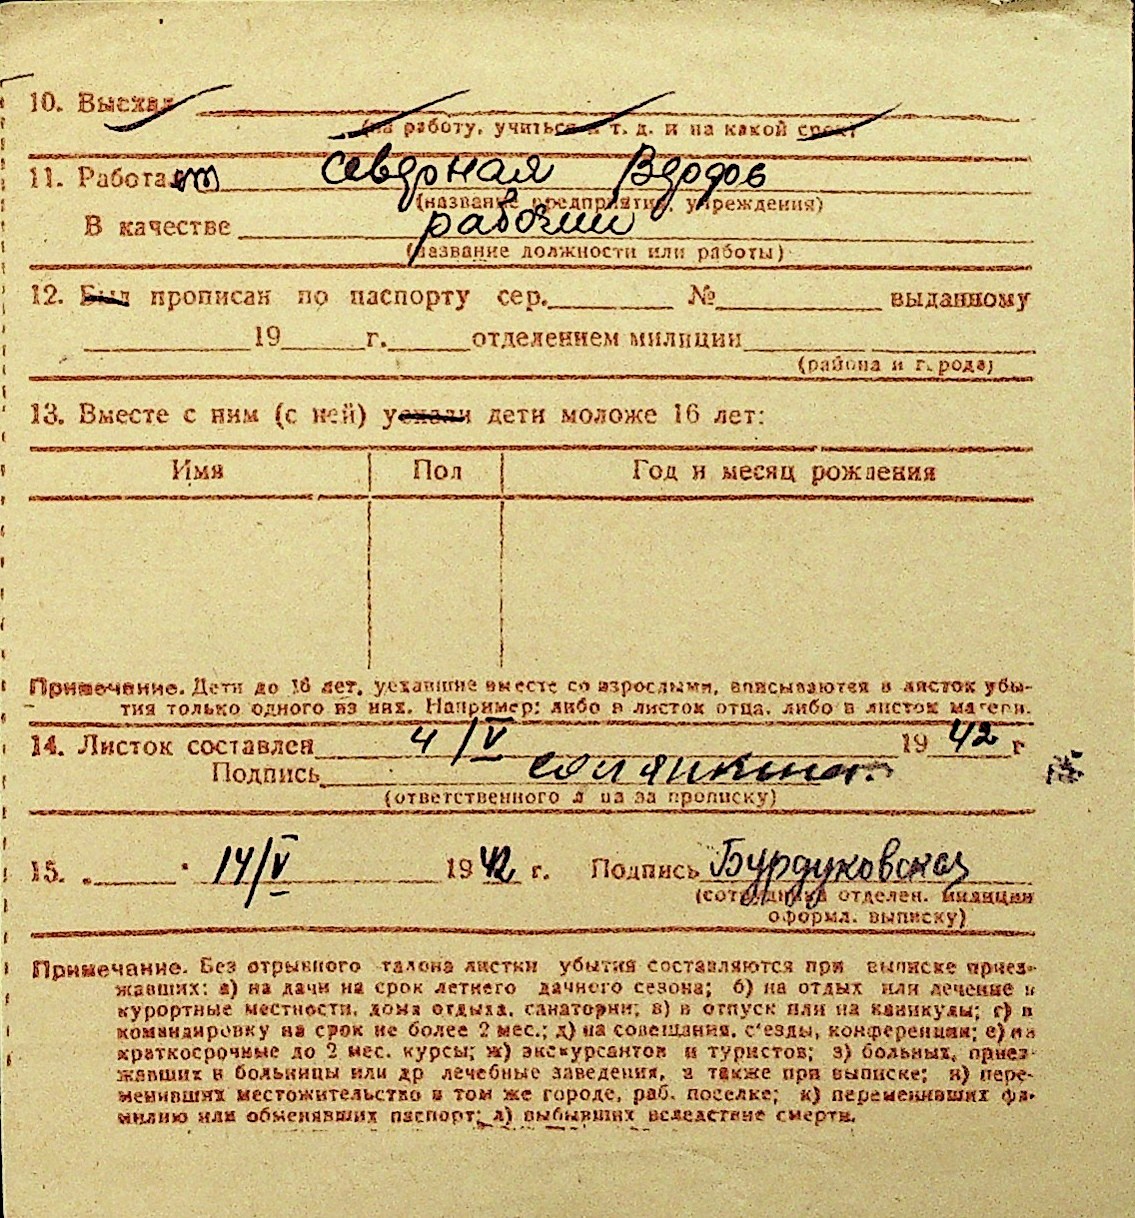 10. Выехал
(на работу, учиться и т. д. и на какой срок)
11. Работает северная Вдрдов
(название предприятия, учреждения)
В качестве рабочий
(название должности или работы)
12. Был прописан по паспорту сер. № выданному
19 г. отделением милиции
(района и города)
13. Вместе с ним (с ней) уехали дети моложе 16 лет:
Имя Пол Год и месяц рождения
Примечание. Дети до 16 лет, уехавшие вместе со взрослыми, вписываются в листок убы-
тия только одного из них. Например: либо в листок отца, либо в листок матери.
14. Листок составлен 4/V 1942 г
Подпись
(ответственного л ца за прописку)
15. 14/V 1942 г. Подпись Бурдуковская
(сотрудника отделен. милиции
оформл. выписку)
Примечание. Без отрывного талона листки убытия составляются при выписке приез-
жавших: а) на дачи на срок летнего дачного сезона; б) на отдых или лечение в
курортные местности, дома отдыха, санатории; в) в отпуск или на каникулы; г) в
командировку на срок не более 2 мес.; д) на совещания, с'езды, конференции; е) на
краткосрочные до 2 мес. курсы; ж) экскурсантов и туристов; з) больных, приез-
жавших в больницы или др лечебные заведения, а также при выписке; и) пере-
менивших местожительство в том же городе, раб. поселке; к) переменивших фа-
милию или обменявших паспорт; л) выбывших вследствие смерти.